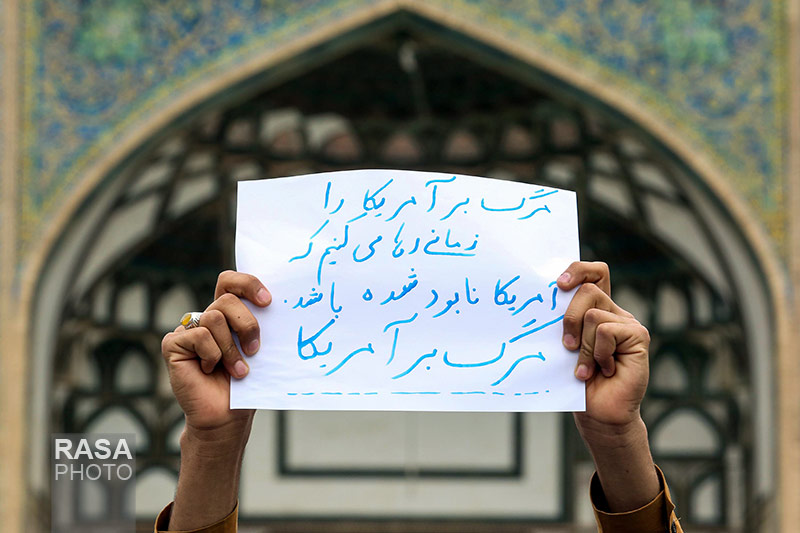 مرگ بر آمریکا را
زمانی رها می کنیم که
آمریکا نابود شده باشد.
مرگ بر آمریکا
RASA
PHOTO